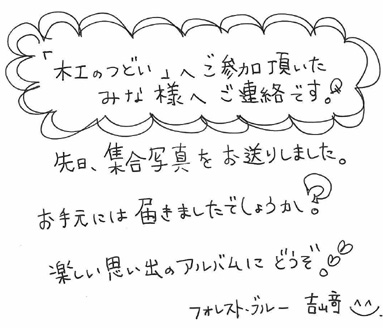 「木工のつどい」へご参加頂いた
みな様へ ご連絡です。
先日、集合写真をお送りしました。
お手元には届きましたでしょうか?
楽しい思い出のアルバムに どうぞ!
フォレスト・ブルー 吉崎